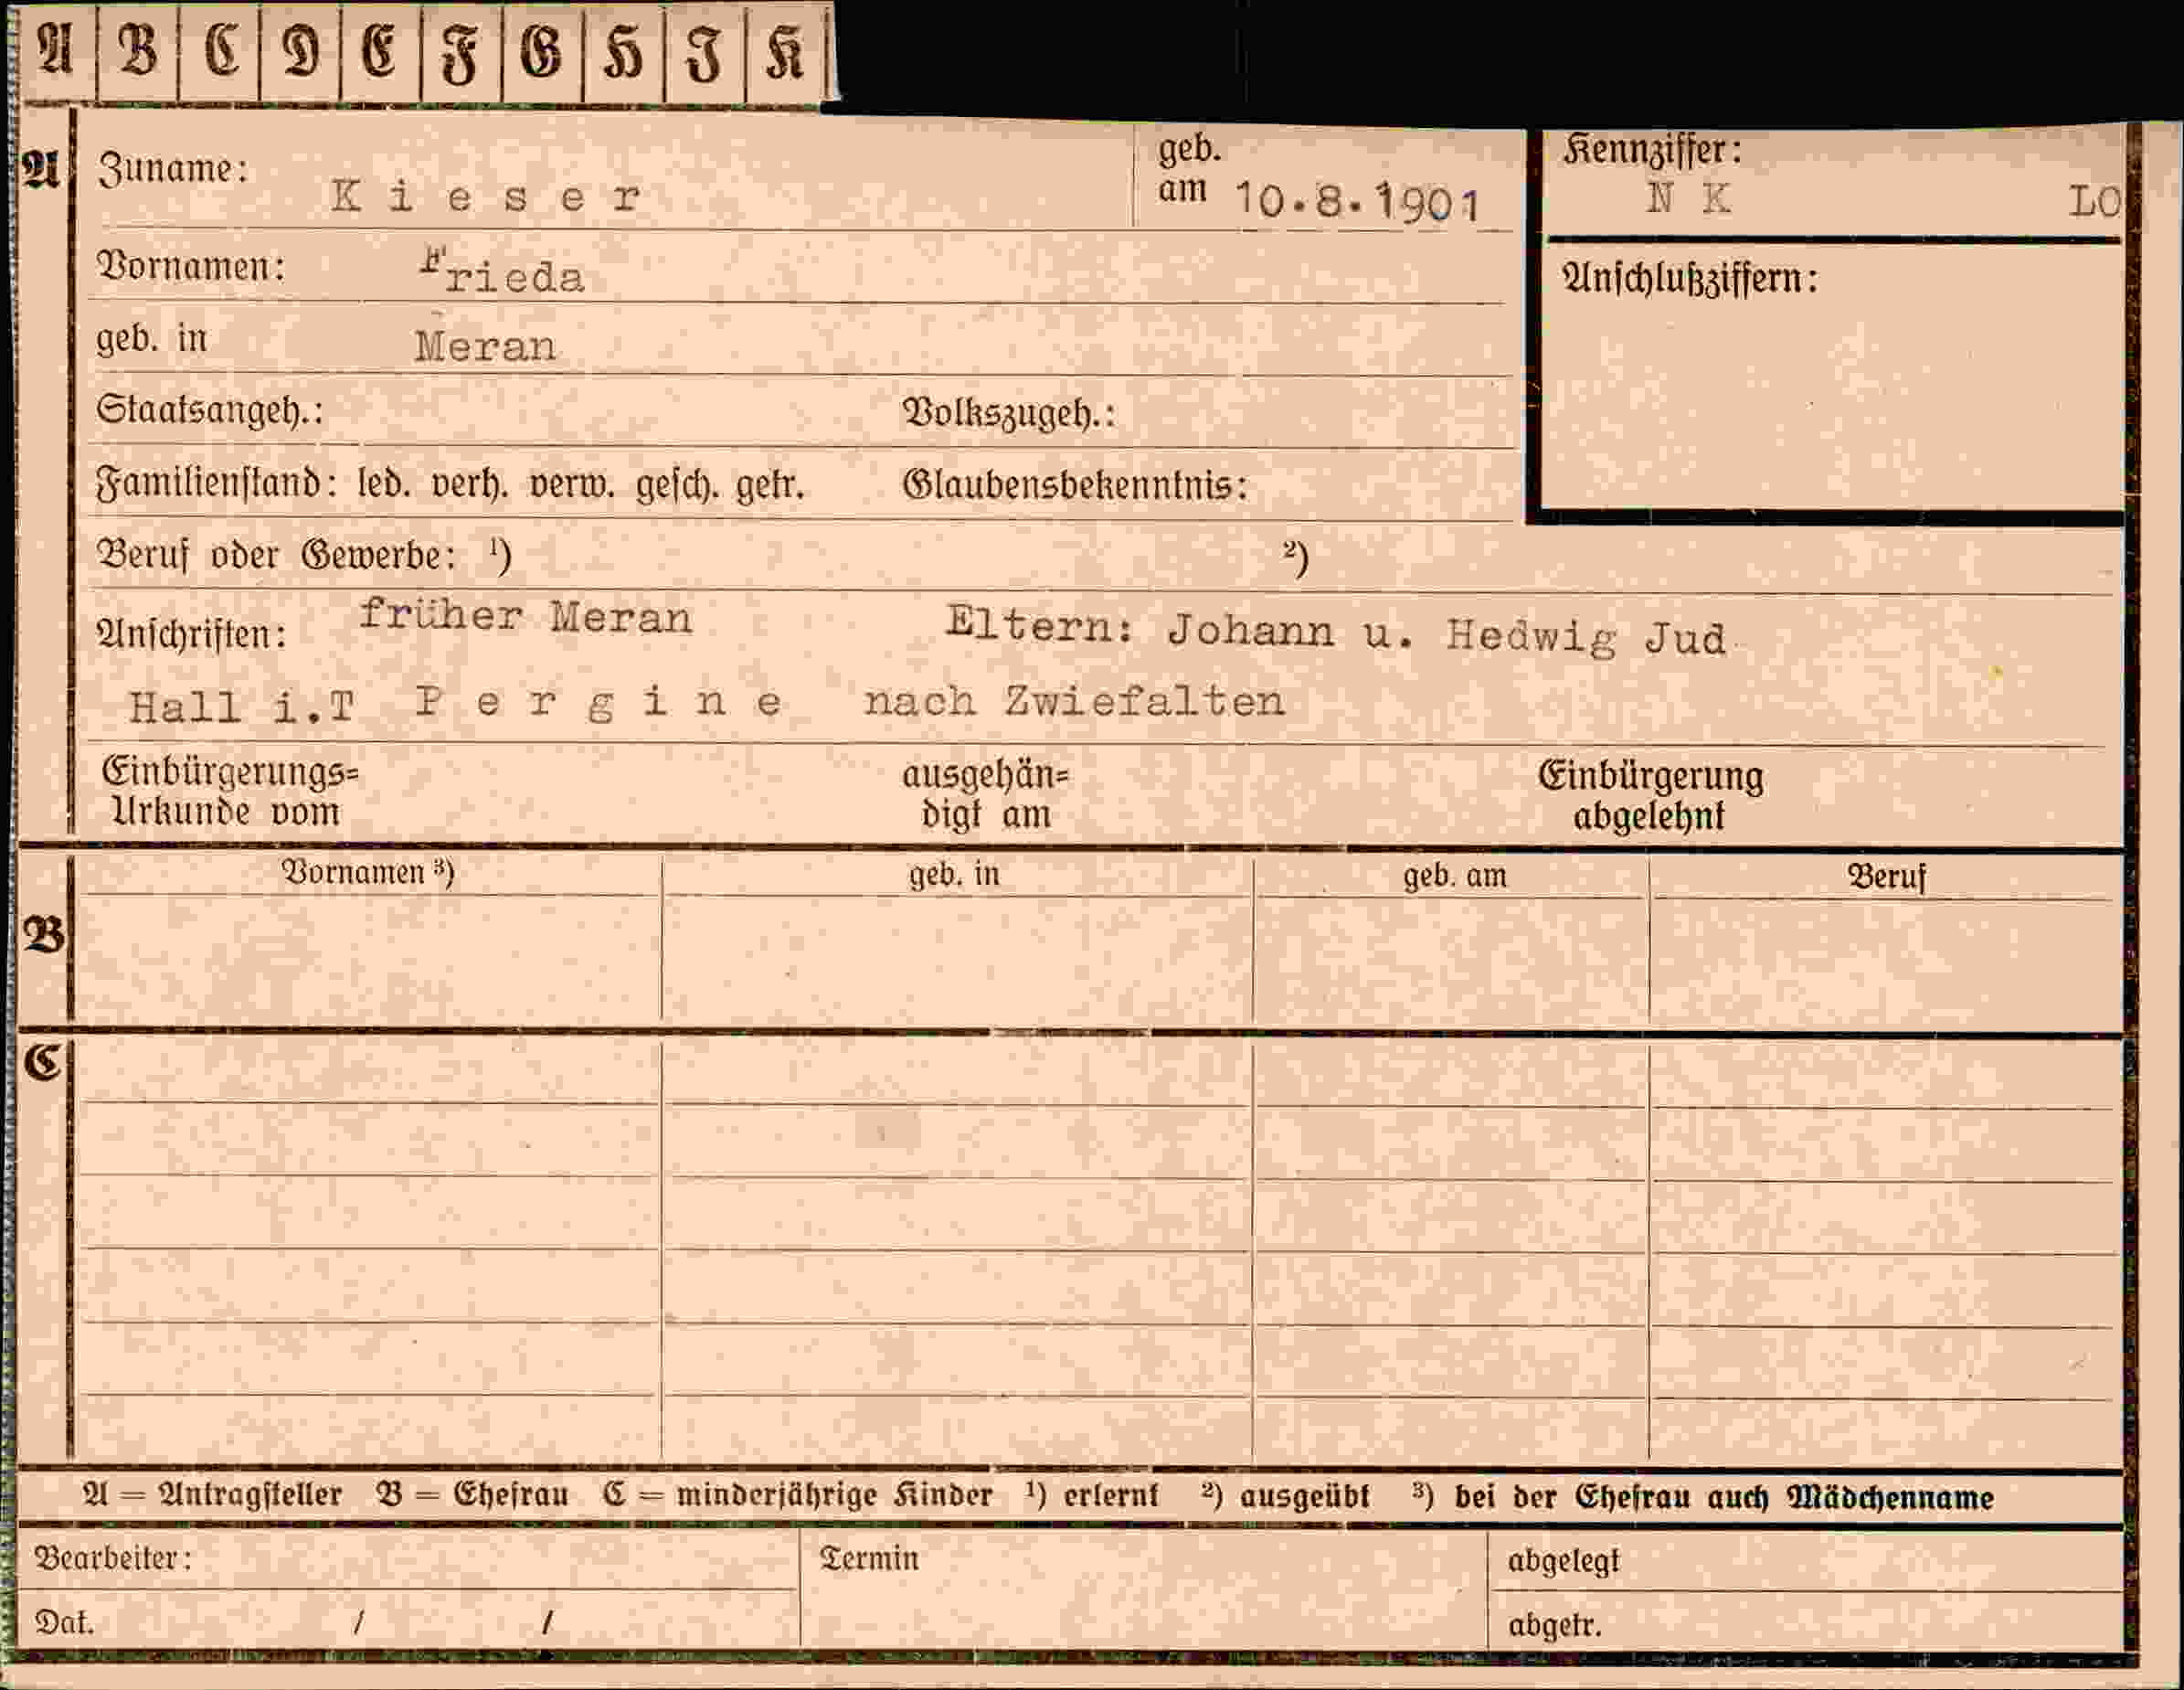 A B C D E F G H J K
A Zuname: Kieser geb. am 10.8.1901 Kennziffer: N K LO
Vornamen: Frieda Anschlußziffern:
geb. in Meran
Staatsangeh.: Volkszugeh.:
Familienstand: led. verh. verw. gesch. getr. Glaubensbekenntnis:
Beruf oder Gewerbe: ¹) ²)
Anschriften: früher Meran Eltern: Johann u. Hedwig Jud
Hall i.T Pergine nach Zwiefalten
Einbürgerungs= ausgehän= Einbürgerung
Urkunde vom digt am abgelehnt
Vornamen ³) geb. in geb. am Beruf
B
C
A = Antragsteller B = Ehefrau C = minderjährige Kinder ¹) erlernt ²) ausgeübt ³) bei der Ehefrau auch Mädchenname
Bearbeiter: Termin abgelegt
Dat. / / abgetr.